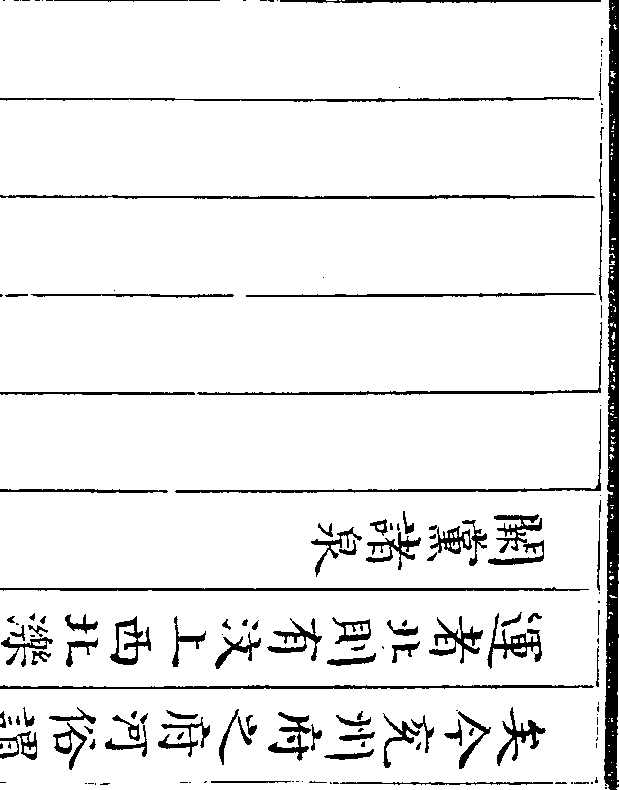 矣今兗州府之府河俗謂
運者北則有汶上西北濼
闕黨諸泉